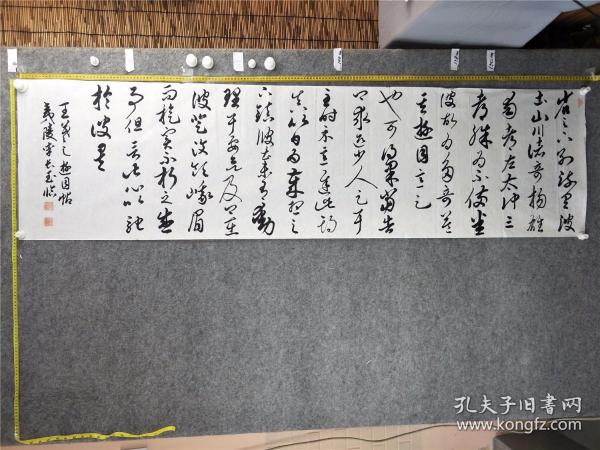 省足下别疏具彼
土山川諸奇揚雄
蜀都左太冲三
都殊為不備悉
彼故為多奇益
令其遊目意足
也可得果當告
卿求迎少人足耳
至時示意遲此期
真以日為歲想足
下鎮彼土未有動
理耳要欲及卿在
彼登汶領峨眉
而旋實不朽之盛
事但言此心以馳
於彼矣
王羲之遊目帖
孔夫子旧书网
www.kongfz.com